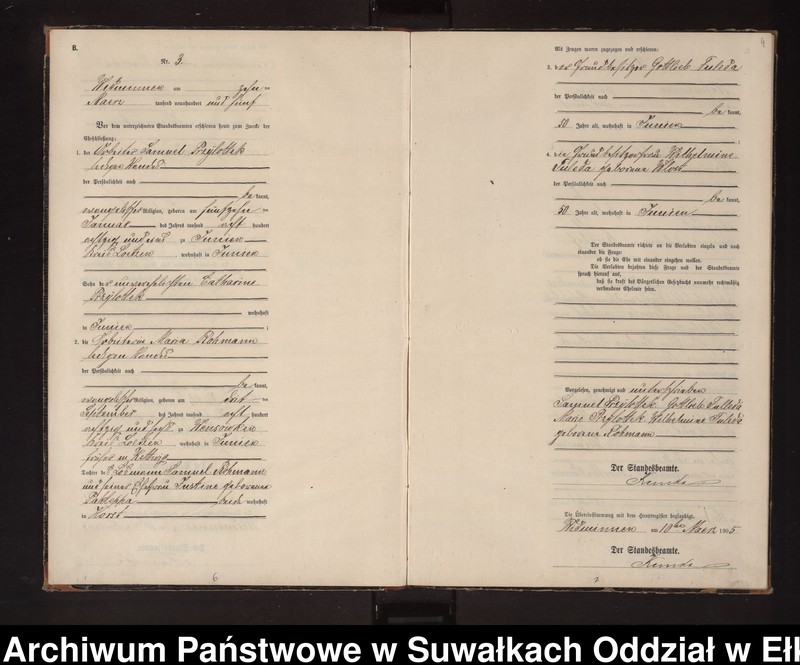 B.
Nr. 3.
Widminnen am zehn ten
Maerz tausend neunhundert und fünf
Vor dem unterzeichneten Standesbeamten erschienen heute zum Zwecke der
Eheschließung:
1. der Arbeiter Samuel Przylottek
ledigen Standes
der Persönlichkeit nach
be kannt,
evangelischer Religion, geboren am fünfzehn ten
Januar des Jahres tausend acht hundert
achtzig und zu
Kreis Loetzen, wohnhaft in
Sohn der unverehelichten Catharine
Przylottek
wohnhaft
in ;
2. die Arbeiterin Maria Rohmann
ledigen Standes
der Persönlichkeit nach
be kannt,
evangelischer Religion, geboren am
September des Jahres tausend acht hundert
achtzig und zu
Kreis Loetzen, wohnhaft in
früher in
Tochter des Samuel Rohmann
und seiner Ehefrau Justine geborene
beide wohnhaft
in
6
4
Als Zeugen waren zugezogen und erschienen:
3. der Grundbesitzer Gottlieb
der Persönlichkeit nach
be kannt,
50 Jahre alt, wohnhaft in ;
4. die Grundbesitzerfrau Wilhelmine
geborene
der Persönlichkeit nach
be kannt,
50 Jahre alt, wohnhaft in
Der Standesbeamte richtete an die Verlobten einzeln und nach
einander die Frage:
ob sie die Ehe mit einander eingehen wollen.
Die Verlobten bejahten diese Frage und der Standesbeamte
sprach hierauf aus,
daß sie kraft des Bürgerlichen Gesetzbuchs nunmehr rechtmäßig
verbundene Eheleute seien.
Vorgelesen, genehmigt und unterschrieben
Samuel Przylottek Gottlieb
Marie Przylottek Wilhelmine
geborene Rohmann
Der Standesbeamte.
Die Übereinstimmung mit dem Hauptregister beglaubigt.
Widminnen am 10ten Maerz 1905
Der Standesbeamte.
7
Archiwum Państwowe w Suwałkach Oddział w Ełk